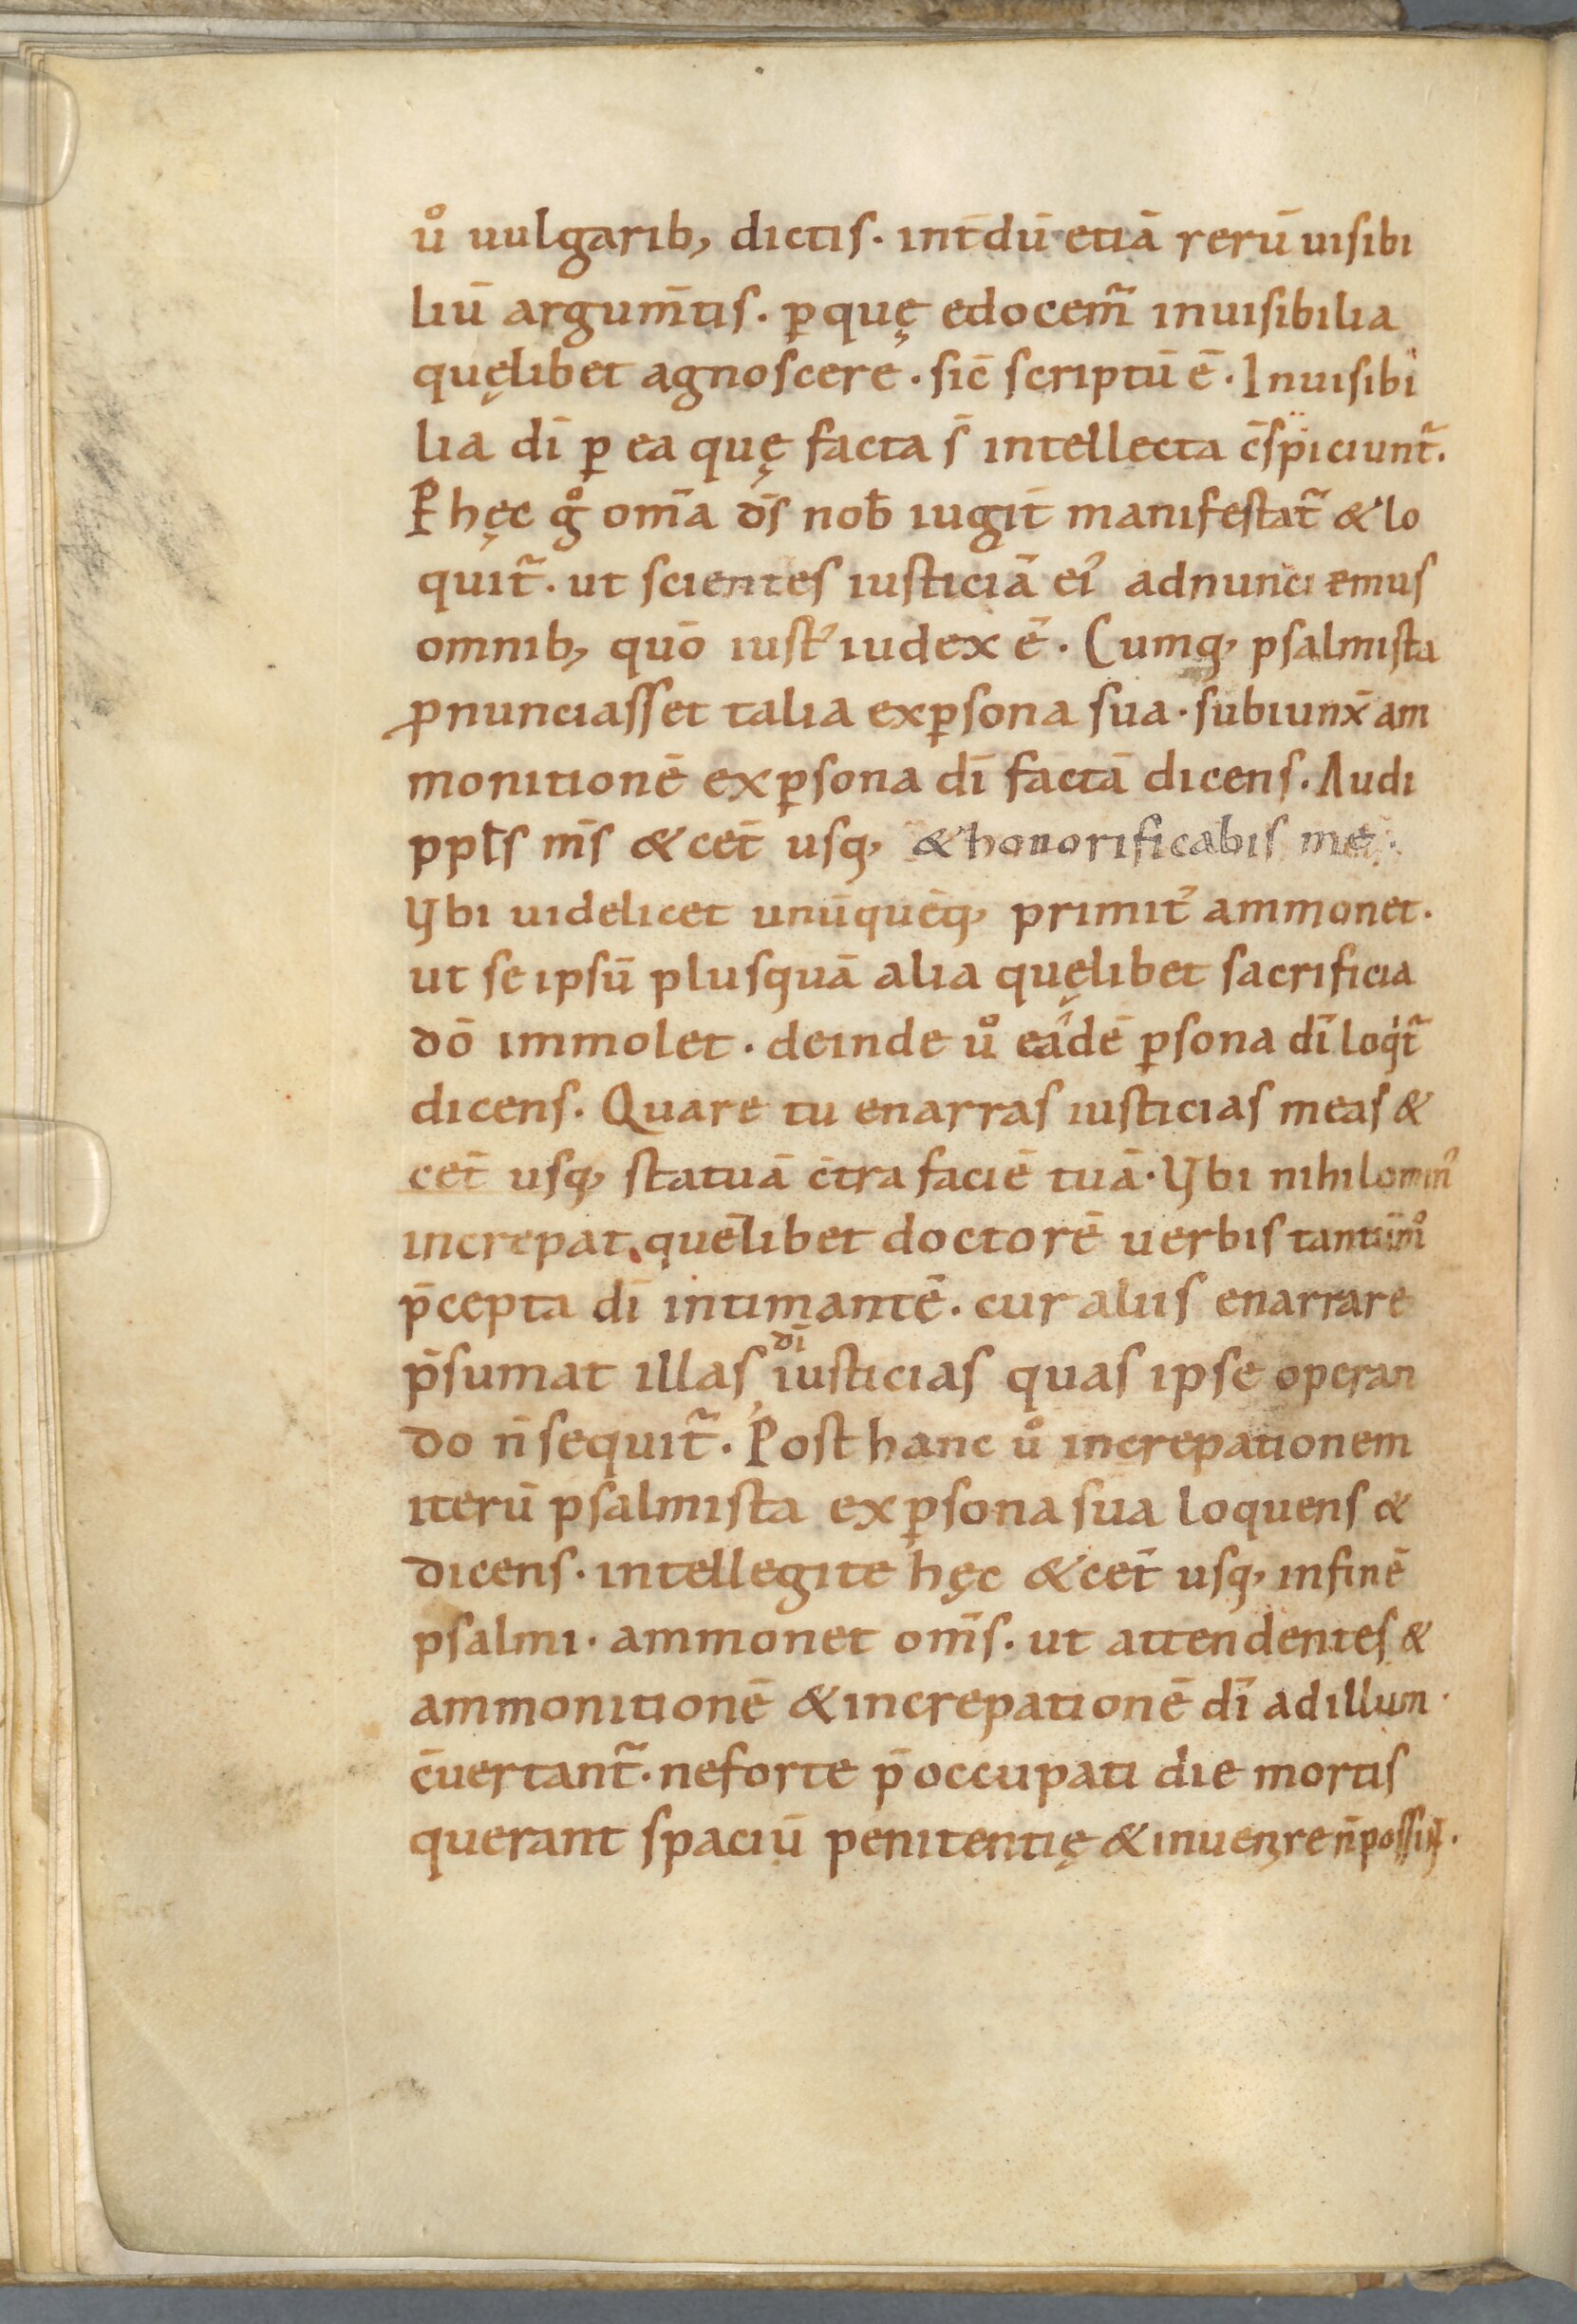 uͦ uulgarib; dictis. int̄dū etiā rerū uisibi
liū argum̄tis. ꝑ quę edocem̃ inuisibilia
quęlibet agnoscere. sic̄ scriptū ē. Inuisibi
lia dī ꝑ ea quę facta s̄ intellecta c̄spiciunt̃.
P hęc gͦ om̄a ds̄ nob̄ iugit̄ manifestat̃ & lo
quit̃. ut scientes iusticiā ei᾽ adnunciemus
omnib; quō iust᾽ iudex ē. Cumq; psalmista
ꝓnunciasset talia ex ꝑsona sua. subiunx̄ am
monitionē ex ꝑsona dī factā dicens. Audi
ppls̄ ms̄ & cet̄ usq; & honorificabis me.
Vbi uidelicet unūquēq; primit᾽ ammonet.
ut se ipsū plusquā alia quęlibet sacrificia
dō immolet. deinde uͦ eadē ꝑsona dī loqͥt̃
dicens. Quare tu enarras iusticias meas &
cet̄ usq; statuā c̄tra faciē tuā. Vbi nihilomin᾽
increpat quēlibet doctorē uerbis tantūmͦ
p̄cepta dī intimantē. cur aliis enarrare
p̄sumat illas dī iusticias quas ipse operan
do n̄ sequit̃. Post hanc uͦ increpationem
iterū psalmista ex ꝑsona sua loquens &
dicens. intellegite hęc & cet̄ usq; in finē
psalmi. ammonet om̄s. ut attendentes &
ammonitionē & increpationē dī ad illum
c̄uertant̃. ne forte p̄occupati die mortis
querant spaciū penitentię & inuenire n̄ possint.